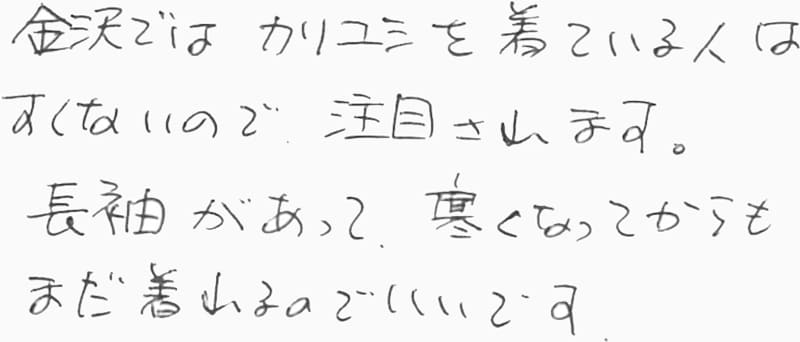 金沢では カリユシを着ている人は
すくないので、注目されます。
長袖があって、寒くなってからも
まだ着れるのでいいです.